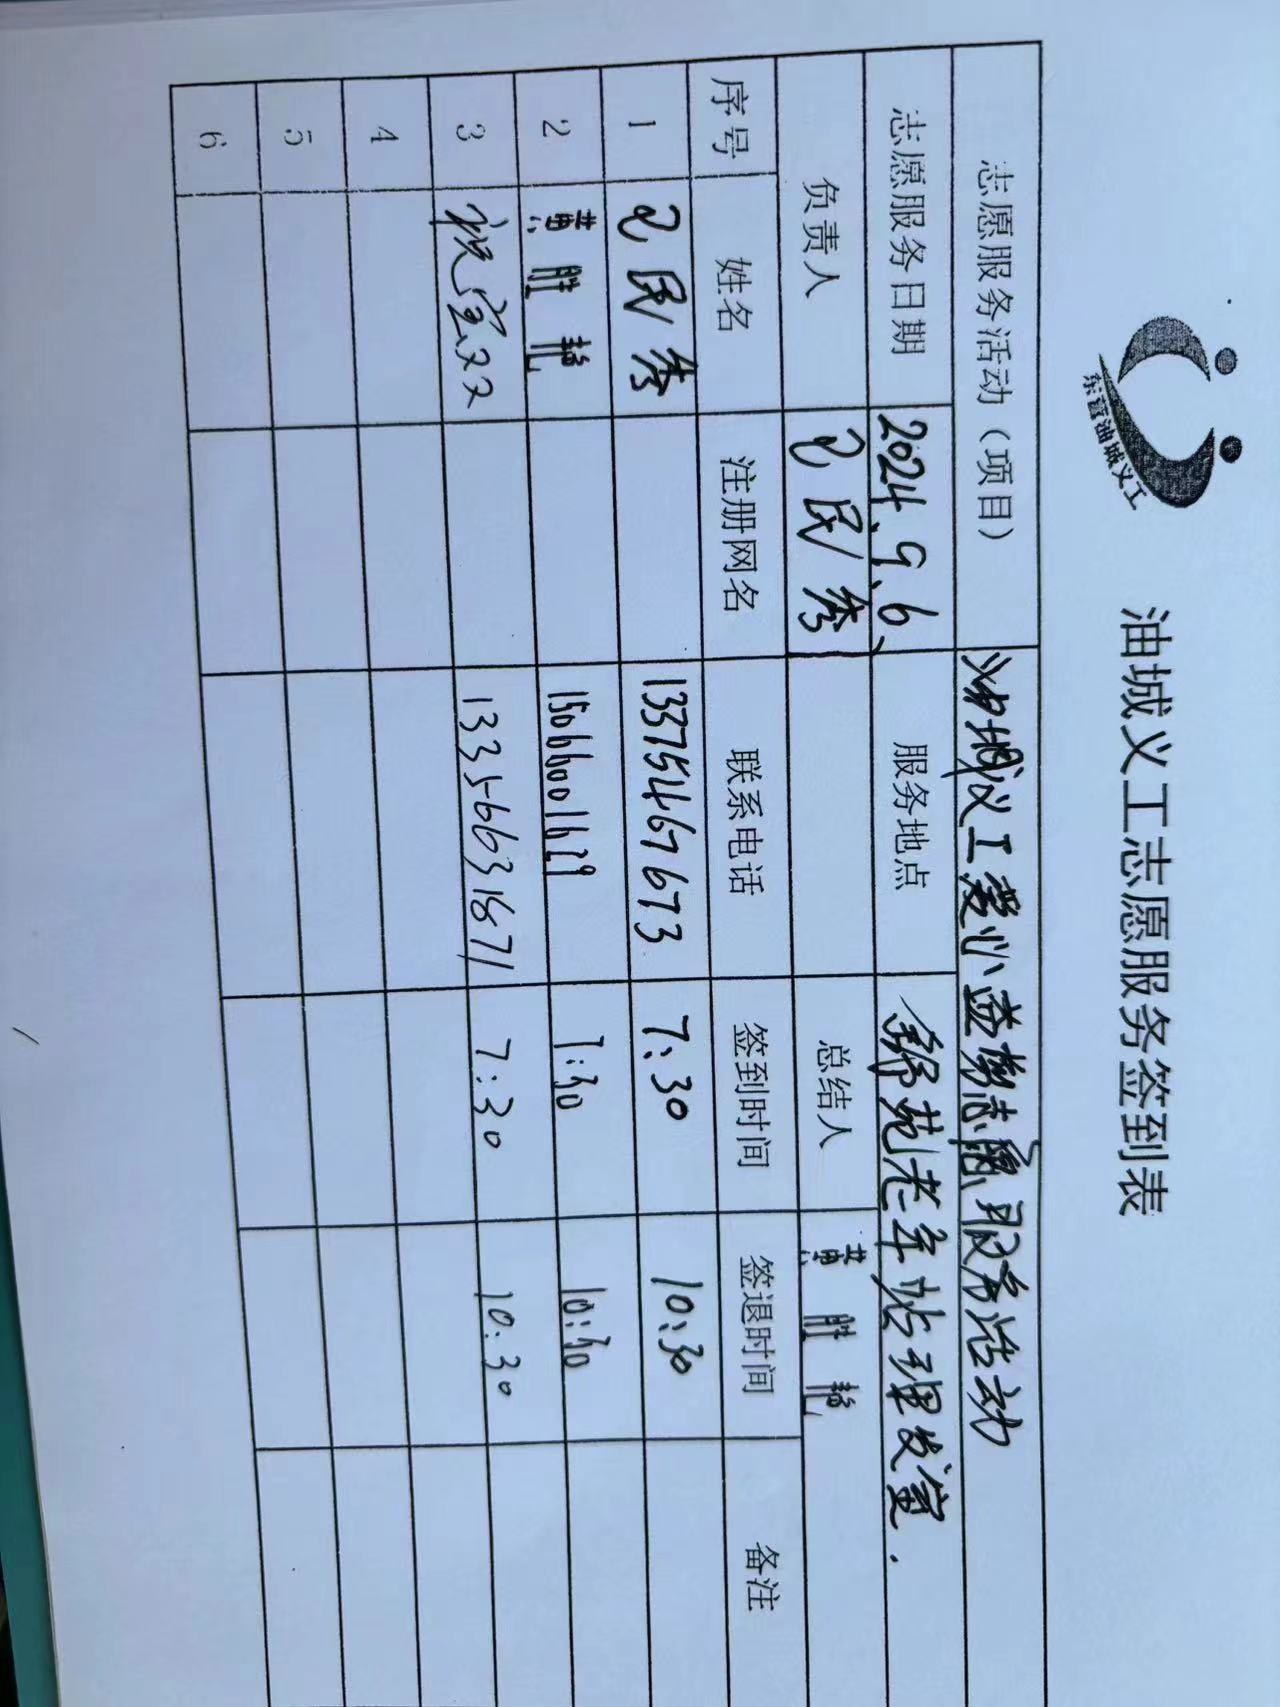 东营油城义工
油城义工志愿服务签到表
志愿服务活动（项目） 油城义工爱心益剪志愿服务活动
志愿服务日期 2024.9.6. 服务地点 锦苑老年站理发室.
负责人 民秀 总结人 黄胜艳
序号 姓名 注册网名 联系电话 签到时间 签退时间 备注
1 民秀 13375467673 7:30 10:30
2 黄胜艳 15066001629 7:30 10:30
3 13356631871 7:30 10:30
4
5
6